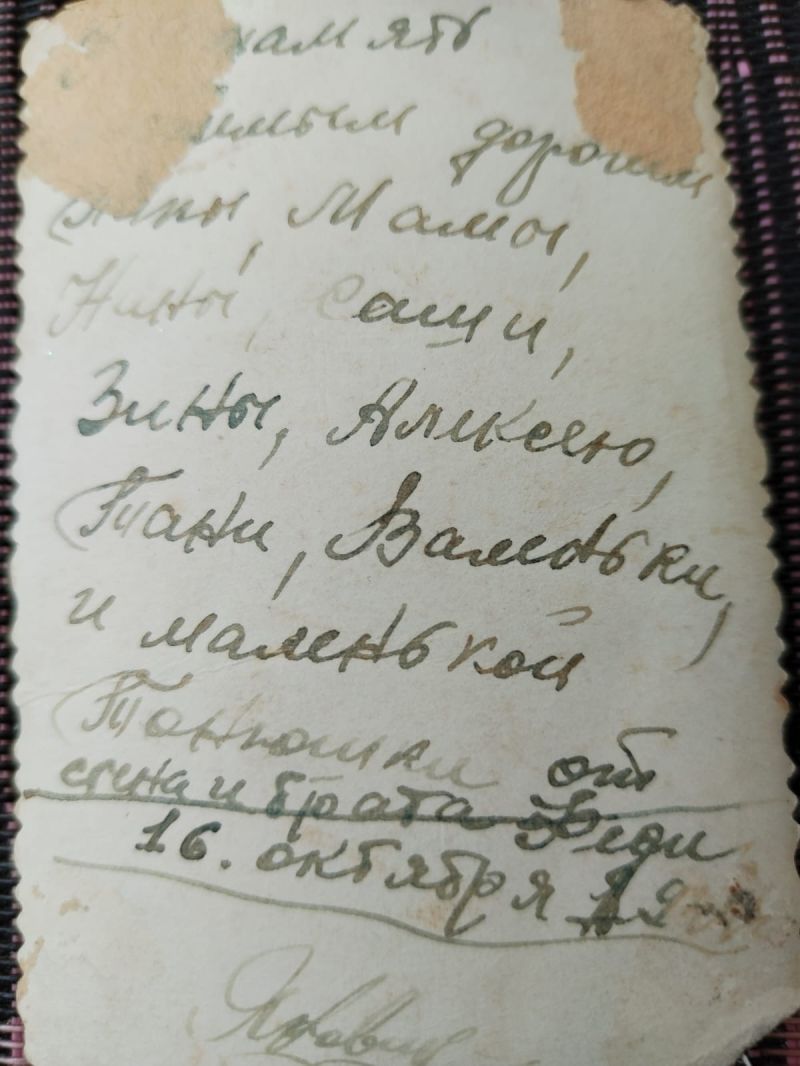 память
дорогим
Мамы,
Нины, Саши,
Зины, Алексею,
Тани, Валюньки,
и маленькой
Танюшки от
сына и брата Феди
16. октября 19